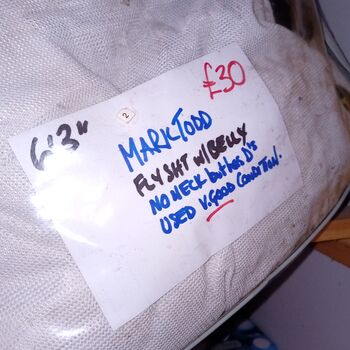 £30
6'3"
2
MARK TODD
FLY SHT w/ BELLY
NO NECK but has D's
USED V.GOOD CONDITION.